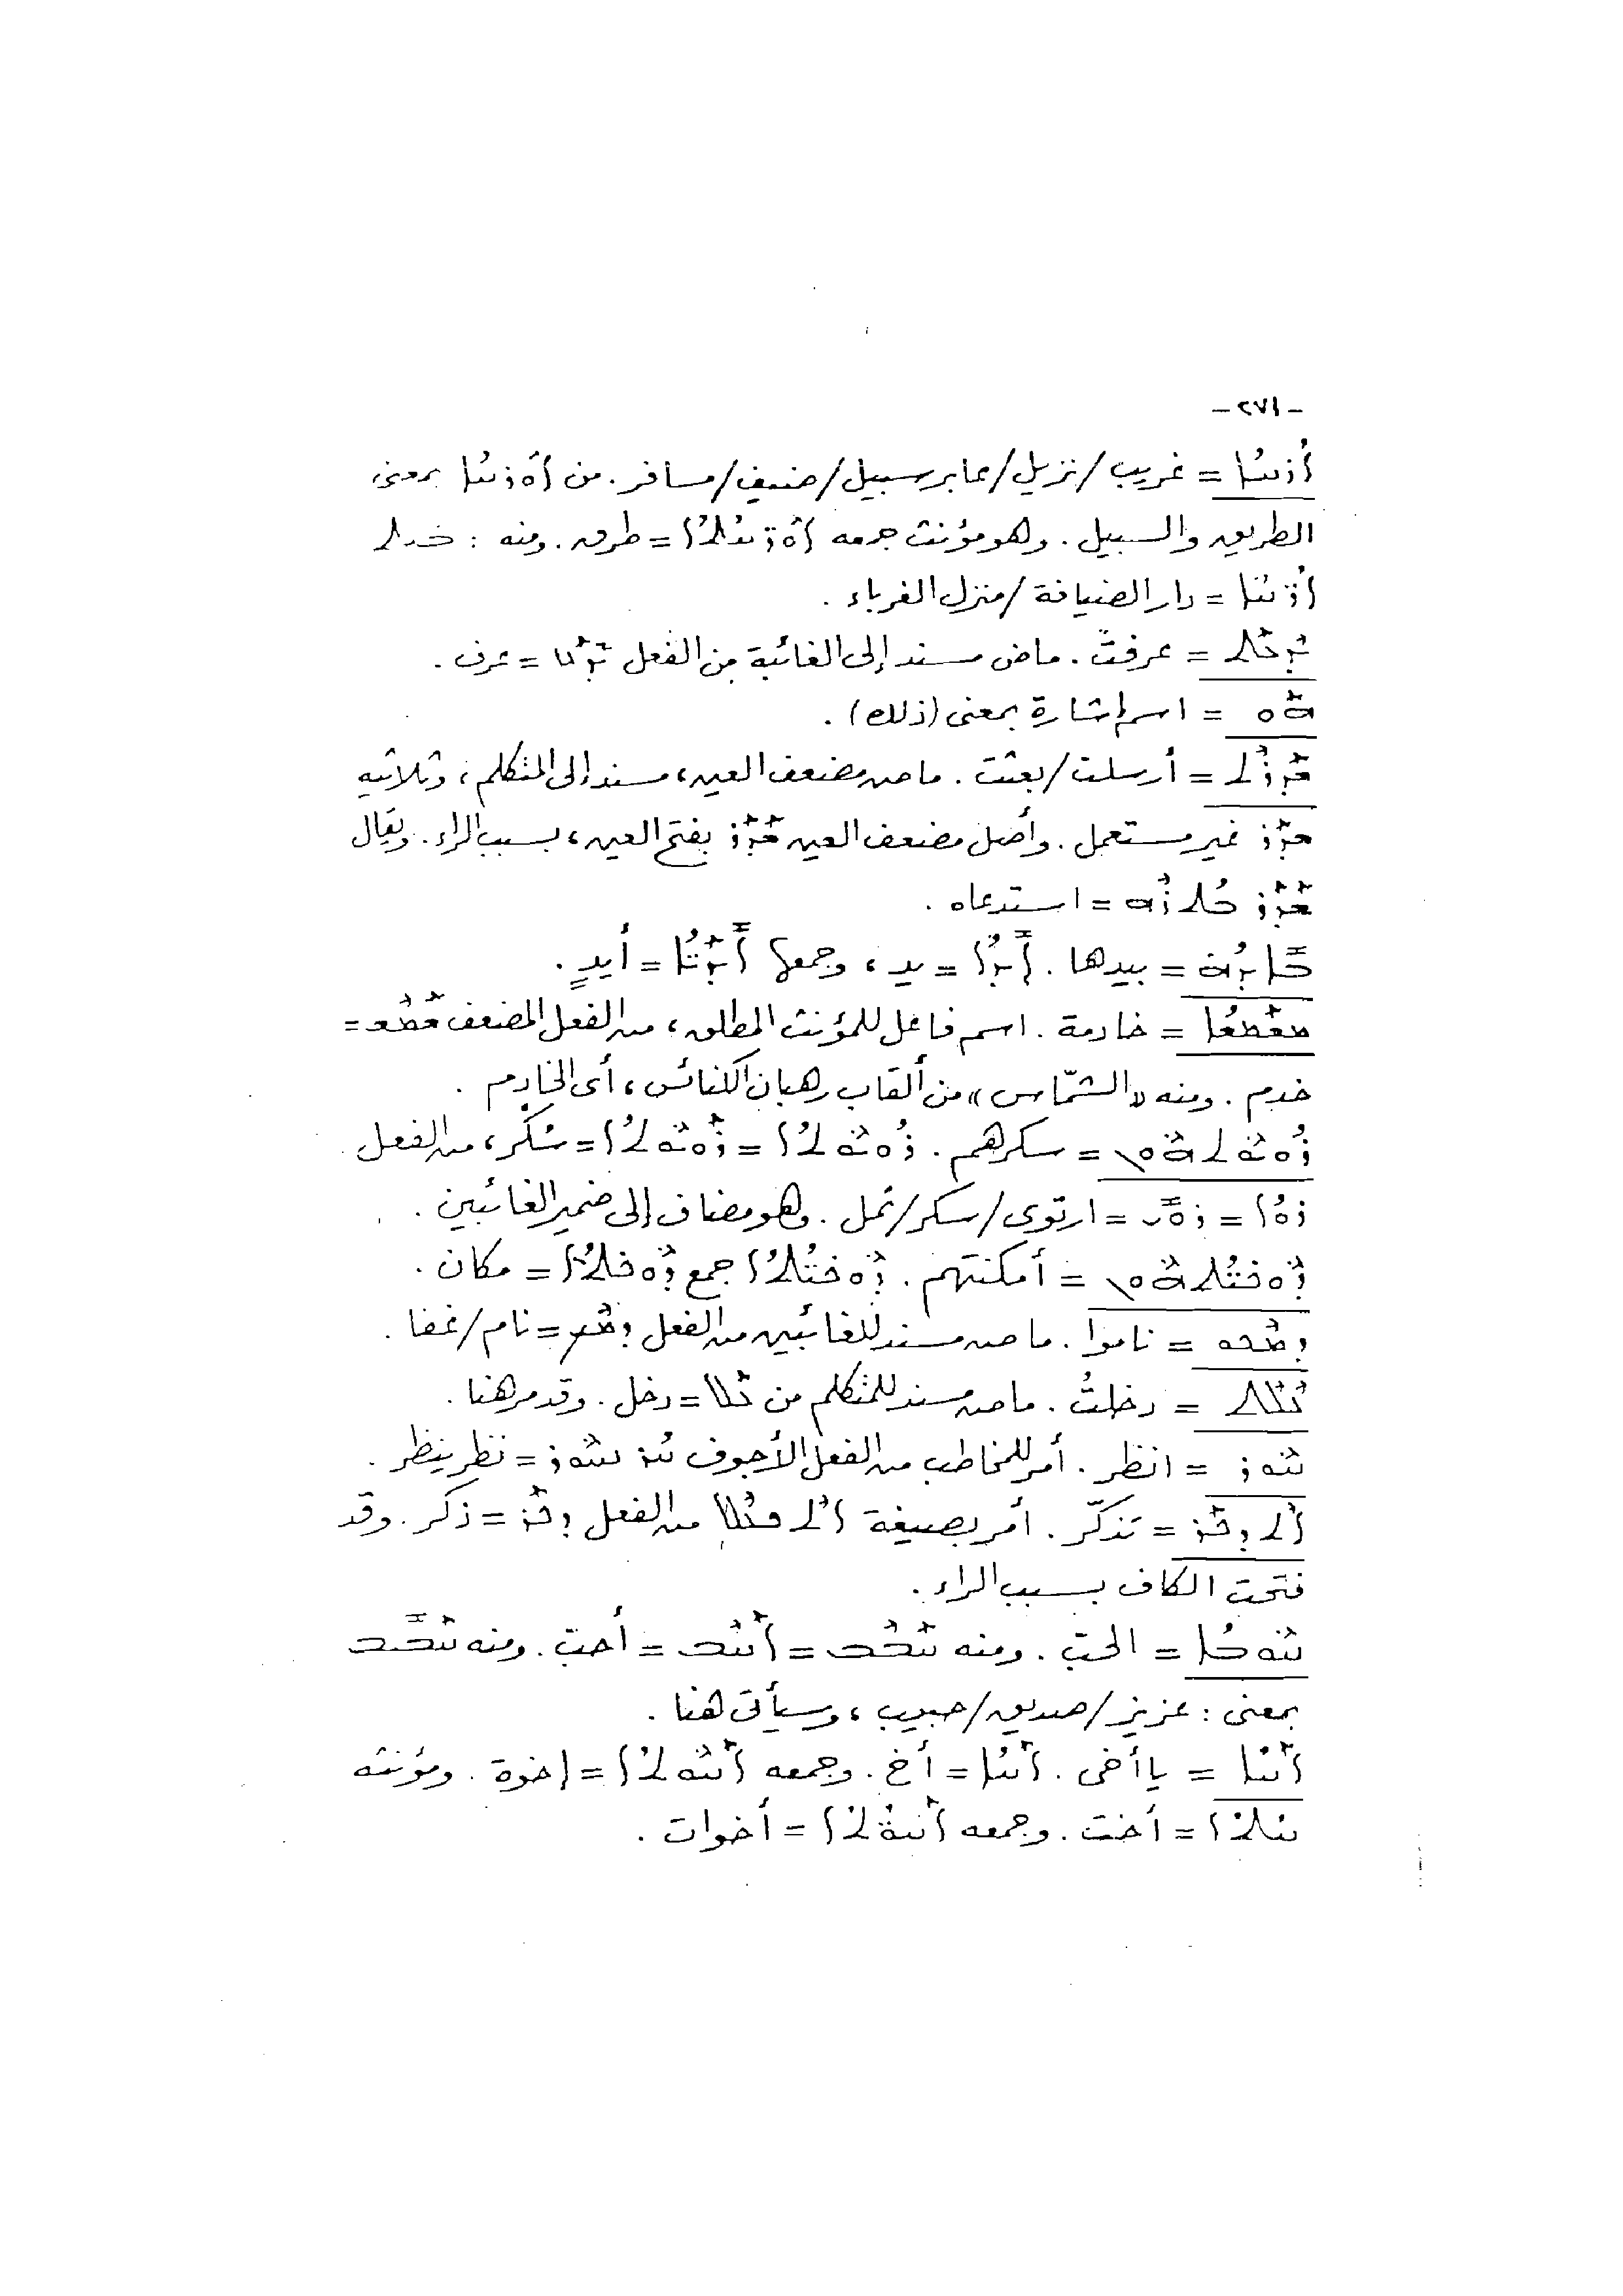 - ٢٧١ -
ܐܰܟܣܢܳܝܳܐ = غريب / نزيل / عابر سبيل / ضيف / مسافر. من ܐܘܪܚܳܐ بمعنى
الطريق والسبيل. وهو مؤنث جمعه ܐܘܪ̈ܚܳܬܳܐ = طرق. ومنه : ܒܝܬ
ܐܪ̈ܚܐ = دار الضيافة / منزل الغرباء.
ܝܶܕܥܰܬ = عرفتْ. ماض مسند إلى الغائبة من الفعل ܝܺܕܰܥ = عرف.
ܗܰܘ = اسم إشارة بمعنى (ذلك).
ܫܰܕܪܶܬ = أرسلت / بعثت. ماض مضعف العين، مسند إلى المتكلم، وثلاثيه
ܫܕܰܪ غير مستعمل. وأصل مضعف العين ܫܰܕܰܪ بفتح العين، بسبب الراء. ويقال
ܫܰܕܰܪ ܒܳܬܪܶܗ = استدعاه.
ܒܺܐܝܕܳܗ = بيدها. ܐܺܝܕܳܐ = يد، وجمعها ܐܺܝܕܰܝ̈ܳܐ = أيدٍ.
ܡܫܰܡܫܳܐ = خادمة. اسم فاعل للمؤنث المطلق، من الفعل المضعف ܫܰܡܶܫ =
خدم. ومنه «الشمّاس» من ألقاب رهبان الكنائس، أى الخادم.
ܪܰܘܝܽܘܬܗܽܘܢ = سكرهم. ܪܰܘܳܝܽܘܬܳܐ = ܪܰܘܳܝܽܘܬܳܐ = سُكْر، من الفعل
ܪܘܳܐ = ܪܘܺܝ = ارتوى / سكر / ثمل. وهو مضاف إلى ضمير الغائبين.
ܕܽܘܟܝ̈ܳܬܗܽܘܢ = أمكنتهم. ܕܽܘܟܝ̈ܳܬܳܐ جمع ܕܽܘܟܬܳܐ = مكان.
ܕܡܶܟܘ = ناموا. ماض مسند للغائبين من الفعل ܕܡܶܟ = نام / غفا.
ܥܶܠܶܬ = دخلتُ. ماض مسند للمتكلم من ܥܰܠ = دخل. وقد مر هنا.
ܚܽܘܪ = انظر. أمر للمخاطب من الفعل الأجوف ܚܳܪ ܢܚܽܘܪ = نظر ينظر.
ܐܶܬܕܰܟܪ = تذكّر. أمر بصيغة ܐܶܬܩܰܛܠ من الفعل ܕܟܰܪ = ذكر. وقد
فتحت الكاف بسبب الراء.
ܚܽܘܒܳܐ = الحبّ. ومنه ܚܰܒܶܒ = ܐܰܚܶܒ = أحبّ. ومنه ܚܰܒܺܝܒ
بمعنى : عزيز / صديق / حبيب، وسيأتى هنا.
ܐܳܚܝ = يا أخى. ܐܰܚܳܐ = أخ. وجمعه ܐܰܚܘܬܳܐ = إخوة. ومؤنثه
ܚܳܬܳܐ = أخت. وجمعه ܐܰܚܘܳܬܳܐ = أخوات.